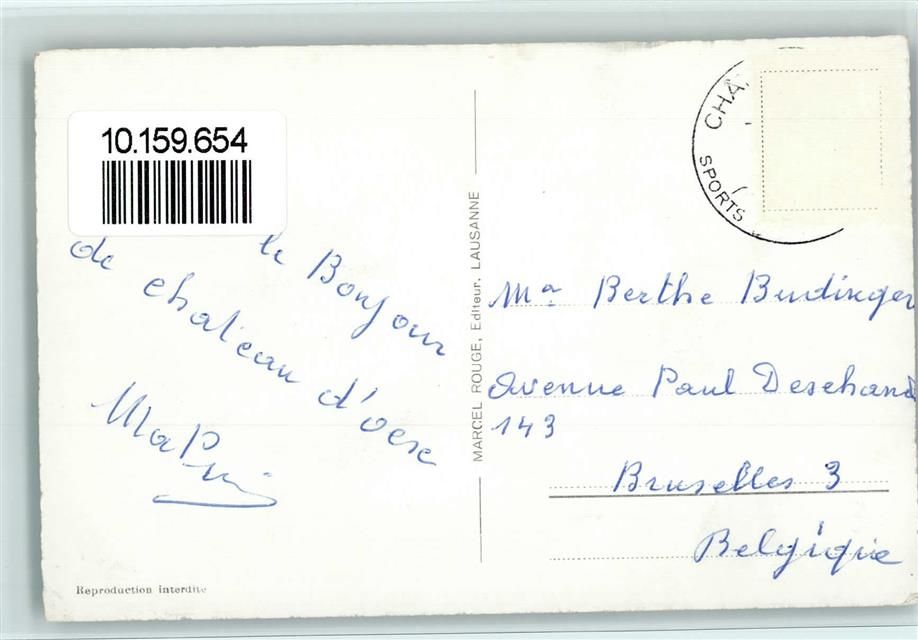 10.159.654
le Bonjour
de chateau d'oex
MARCEL ROUGE, Editeur, LAUSANNE
Reproduction interdite
CHÂ
SPORTS
Ma Berthe Budinger
Avenue Paul Deschanel
143
Bruxelles 3
Belgique